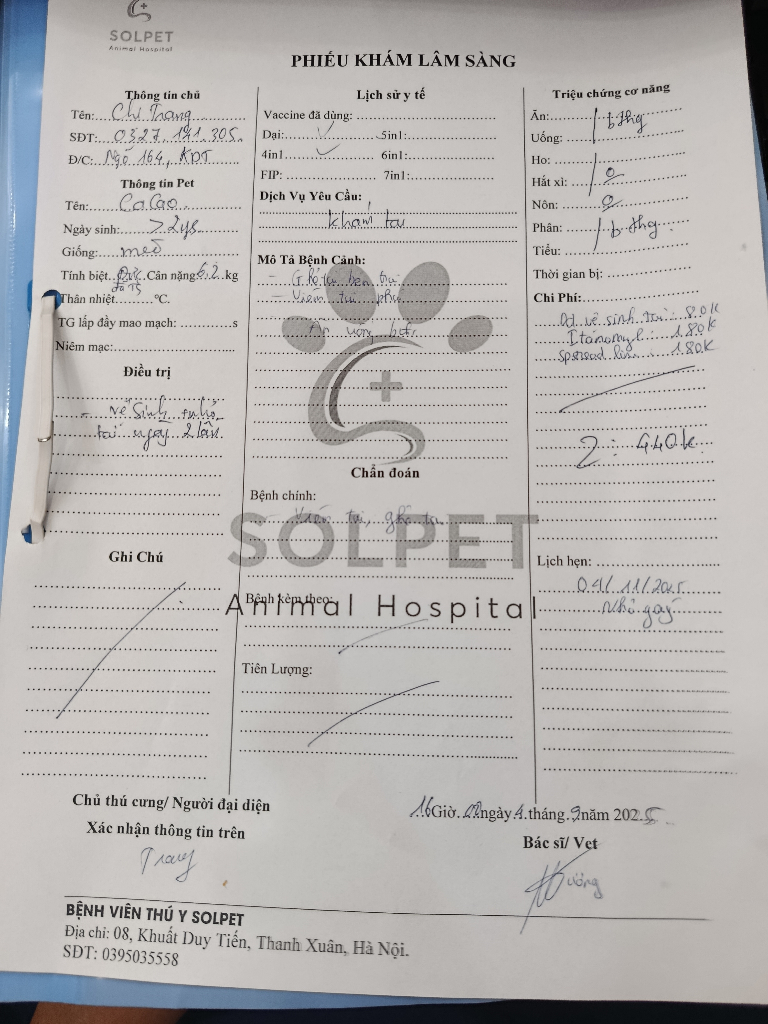 SOLPET
Animal Hospital
PHIẾU KHÁM LÂM SÀNG
Thông tin chủ
Tên: Chị Trang
SĐT: 0327.141.305
Đ/C: Ngõ 164, KĐT
Thông tin Pet
Tên: CaCao
Ngày sinh: > 2ys
Giống: mèo
Tính biệt: Đực Cân nặng 6,2 kg
đã TS
Thân nhiệt °C.
TG lấp đầy mao mạch: s
Niêm mạc:
Điều trị
- Vệ sinh, nhỏ
tai ngày 2 lần
Ghi Chú
Lịch sử y tế
Vaccine đã dùng:
Dại: ✓ 5in1:
4in1 ✓ 6in1:
FIP: 7in1:
Dịch Vụ Yêu Cầu:
khám tai
Mô Tả Bệnh Cảnh:
- Ghẻ tai bên
- Viêm tai
Ăn uống
Chẩn đoán
Bệnh chính:
Viêm tai, ghẻ tai
SOLPET
Animal Hospital
Bệnh kèm theo:
Tiên Lượng:
Triệu chứng cơ năng
Ăn: bthg
Uống:
Ho:
Hắt xì: 0
Nôn: 0
Phân: bthg
Tiểu:
Thời gian bị:
Chi Phí:
vệ sinh tai: 80k
180k
180k
Σ: 440k
Lịch hẹn:
04/11/2025
Nhỏ gáy
Chủ thú cưng/ Người đại diện
Xác nhận thông tin trên
Trang
16 Giờ ngày 4 tháng 9 năm 2025
Bác sĩ/ Vet
Hương
BỆNH VIÊN THÚ Y SOLPET
Địa chỉ: 08, Khuất Duy Tiến, Thanh Xuân, Hà Nội.
SĐT: 0395035558